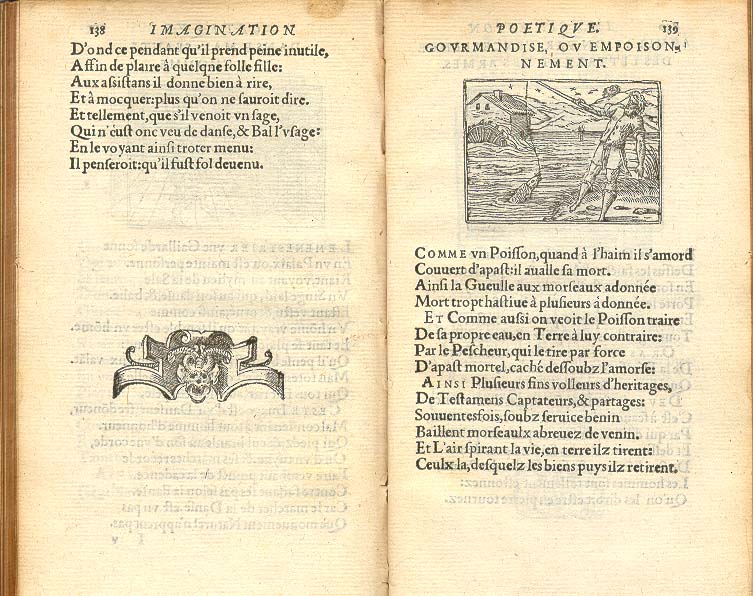 138 IMAGINATION
D'ond ce pendant qu'il prend peine inutile,
Affin de plaire à quelqne folle fille:
Aux assistans il donne bien à rire,
Et à mocquer: plus qu'on ne sauroit dire.
Et tellement, que s'il venoit vn sage,
Qui n'eust onc veu de danse, & Bal l'vsage:
En le voyant ainsi troter menu:
Il penseroit: qu'il fust fol deuenu.
POETIQVE. 139
GOVRMANDISE, OV EMPOISON-
NEMENT.
COMME vn Poisson, quand à l'haim il s'amord
Couuert d'apast: il aualle sa mort.
Ainsi la Gueulle aux morseaux adonnée
Mort tropt hastiue à plusieurs à donnée.
ET Comme aussi on veoit le Poisson traire
De sa propre eau, en Terre à luy contraire:
Par le Pescheur, qui le tire par force
D'apast mortel, caché dessoubz l'amorse:
AINSI Plusieurs fins volleurs d'heritages,
De Testamens Captateurs, & partages:
Souuentesfois, soubz seruice benin
Baillent morseaulx abreuez de venin.
Et L'air spirant la vie, en terre ilz tirent:
Ceulx la, desquelz les biens puys ilz retirent.